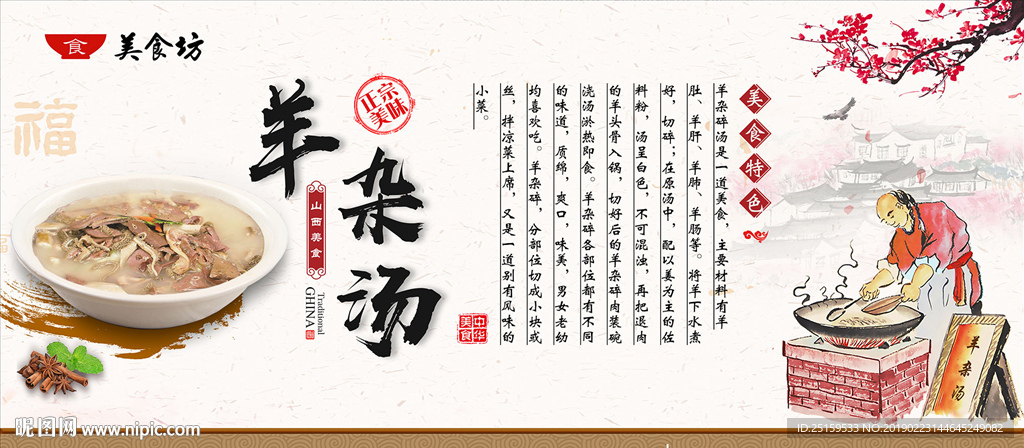 食
美食坊
福
羊杂汤
正宗
美味
山西美食
Traditional
GHINA
中华
美食
美食特色
羊杂碎汤是一道美食，主要材料有羊
肚、羊肝、羊肺、羊肠等。将羊下水煮
好，切碎；在原汤中，配以姜为主的佐
料粉，汤呈白色，不可混浊，再把退肉
的羊头骨入锅，切好后的羊杂碎肉装碗
浇汤淤热即食。羊杂碎各部位都有不同
的味道，质绵，爽口，味美，男女老幼
均喜欢吃。羊杂碎，分部位切成小块或
丝，拌凉菜上席，又是一道别有风味的
小菜。
羊杂汤
昵图网 www.nipic.com
ID:25159533 NO:20190223144645249082